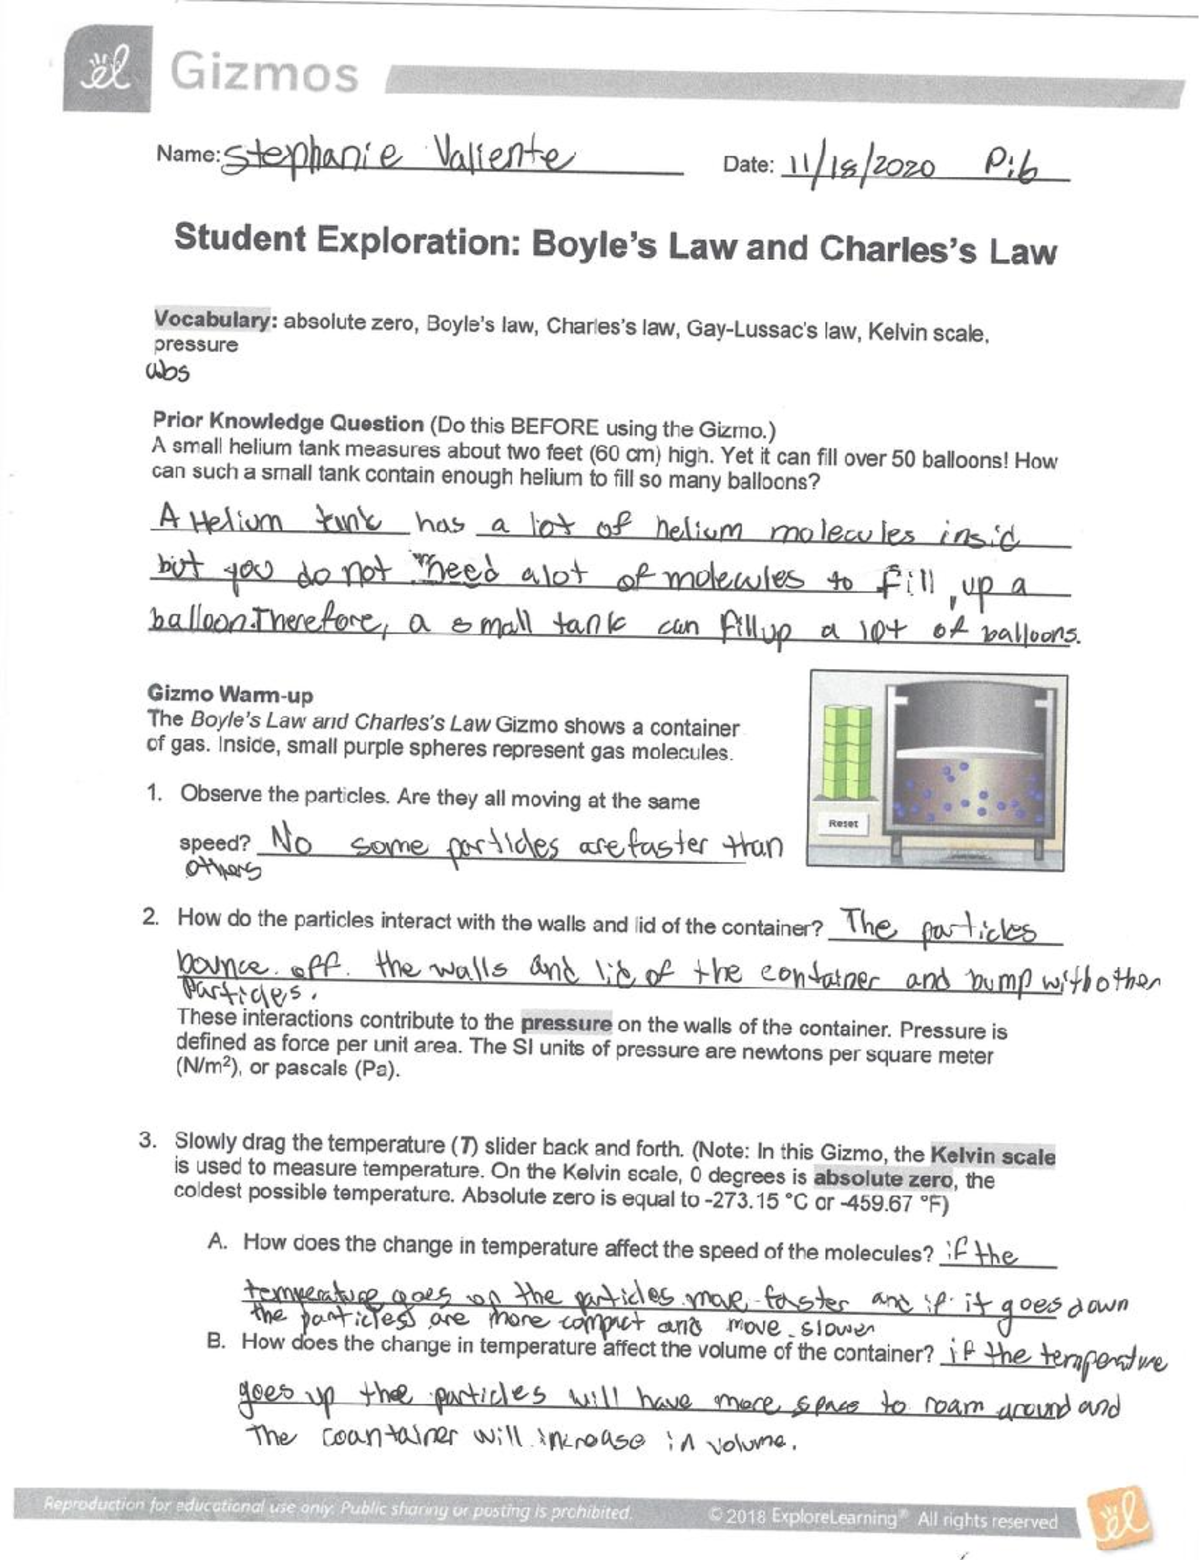 el Gizmos
Name: Stephanie Valiente Date: 11/18/2020 P:6
Student Exploration: Boyle's Law and Charles's Law
Vocabulary: absolute zero, Boyle's law, Charles's law, Gay-Lussac's law, Kelvin scale,
pressure
abs
Prior Knowledge Question (Do this BEFORE using the Gizmo.)
A small helium tank measures about two feet (60 cm) high. Yet it can fill over 50 balloons! How
can such a small tank contain enough helium to fill so many balloons?
A Helium tank has a lot of helium molecules insid
but you do not need alot of molecules to fill, up a
balloon.Therefore, a small tank can fillup a lot of balloons.
Gizmo Warm-up
The Boyle's Law and Charles's Law Gizmo shows a container
of gas. Inside, small purple spheres represent gas molecules.
Reset
1. Observe the particles. Are they all moving at the same
speed? No some particles are faster than
others
2. How do the particles interact with the walls and lid of the container? The particles
bounce off the walls and lid of the container and bump with other
particles.
These interactions contribute to the pressure on the walls of the container. Pressure is
defined as force per unit area. The SI units of pressure are newtons per square meter
(N/m²), or pascals (Pa).
3. Slowly drag the temperature (T) slider back and forth. (Note: In this Gizmo, the Kelvin scale
is used to measure temperature. On the Kelvin scale, 0 degrees is absolute zero, the
coldest possible temperature. Absolute zero is equal to -273.15 °C or -459.67 °F)
A. How does the change in temperature affect the speed of the molecules? if the
temperature goes up the particles move faster and if it goes down
the particless are more compact and move slower
B. How does the change in temperature affect the volume of the container? if the temperature
goes up the particles will have more space to roam around and
The coantainer will increase in volume.
Reproduction for educational use only. Public sharing or posting is prohibited. © 2018 ExploreLearning® All rights reserved el